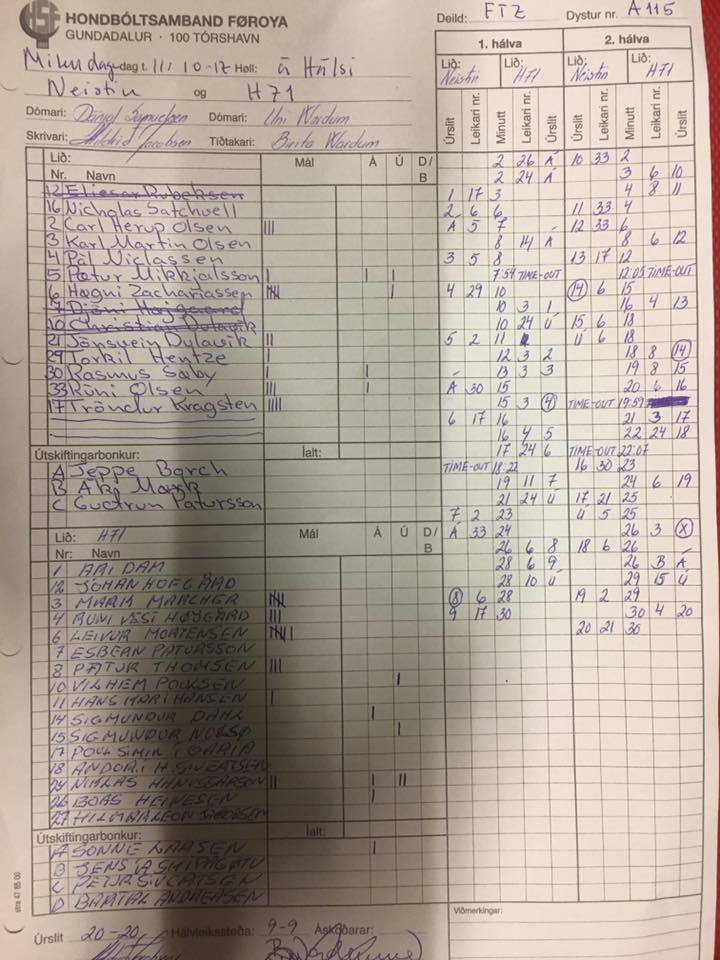 HSF
HONDBÓLTSAMBAND FØROYA
GUNDADALUR · 100 TÓRSHAVN
Deild: FTZ Dystur nr. A 115
Mikudag dag t. 11/10-17 Høll: á Hálsi
Neistin og H71
Dómari: Dómari: Uni Wardum
Skrivari: Jacobsen Tíðtakari: Brita Wardum
1. hálva 2. hálva
Lið: Neistin Lið: H71 Lið: Neistin Lið: H71
Úrslit Leikari nr. Minutt Leikari nr. Úrslit Úrslit Leikari nr. Minutt Leikari nr. Úrslit
Lið: Mál Á Ú D/B
Nr. Navn
12 Eliesar Rubeksen
16 Nicholas Satchwell
2 Carl Herup Olsen III
3 Karl Martin Olsen
4 Pál Niclassen
5 Pætur Mikkjalsson I I I
6 Høgni Zachariassen
7
10 Christian Dylavik
21 Jónsvein Dylavik II
29 Torkil Hentze I
30 Rasmus Sæby I I
33 Rúni Olsen III I
17 Tróndur Kragsten IIII
Útskiftingarbonkur: Íalt:
A Jeppe Barch
B Aki Mærk
C Gudrun Patursson
Lið: H71 Mál Á Ú D/B
Nr: Navn
1 ARI DAM
12 JÓHAN HOFGARÐ
3 MARK MARCHER
4 RUNI VESI HØJGARÐ III
6 LEIVUR MORTENSEN
7 ESBERN PATURSSON
8 PÆTUR THOMSEN III
10 VILHELM POULSEN I
11 HANS MARI HANSEN I
14 SIGMUNDUR DAHL I
15 SIGMUNDUR I
17 POUL SIMIN Í GARÐA
18 ANDORI H.
24 NIKLAS II I II
26 BOAS HEINESEN I
27
Útskiftingarbonkur: Íalt:
A SONNE LARSEN I
B JENS
C
D BARTAL ANDREASEN
2 26 Á 10 33 2
2 24 Á 3 6 10
1 17 3 4 8 11
2 6 6 11 33 4
Á 5 7 12 33 6
8 14 Á 8 6 12
3 5 8 13 17 12
7:54 TIME-OUT 12:05 TIME-OUT
4 29 10 14 6 15
10 3 1 16 4 13
10 24 Ú 15 6 18
5 2 11 Ú 6 18
12 3 2 18 8 14
13 3 3 19 8 15
Á 30 15 20 6 16
15 3 4 TIME-OUT 19:59
6 17 16 21 3 17
16 4 5 22 24 18
17 24 6 TIME-OUT 22:07
TIME-OUT 18:22 16 30 23
19 11 7 24 6 19
21 24 Ú 17 21 25
7 2 23 Ú 5 25
Á 33 24 26 3 X
26 6 8 18 6 26
28 6 9 26 B Á
28 10 Ú 29 15 Ú
8 6 28 19 2 29
9 17 30 30 4 20
20 21 30
Viðmerkingar:
Úrslit 20-20 Hálvleiksstøða: 9-9 Áskoðarar: